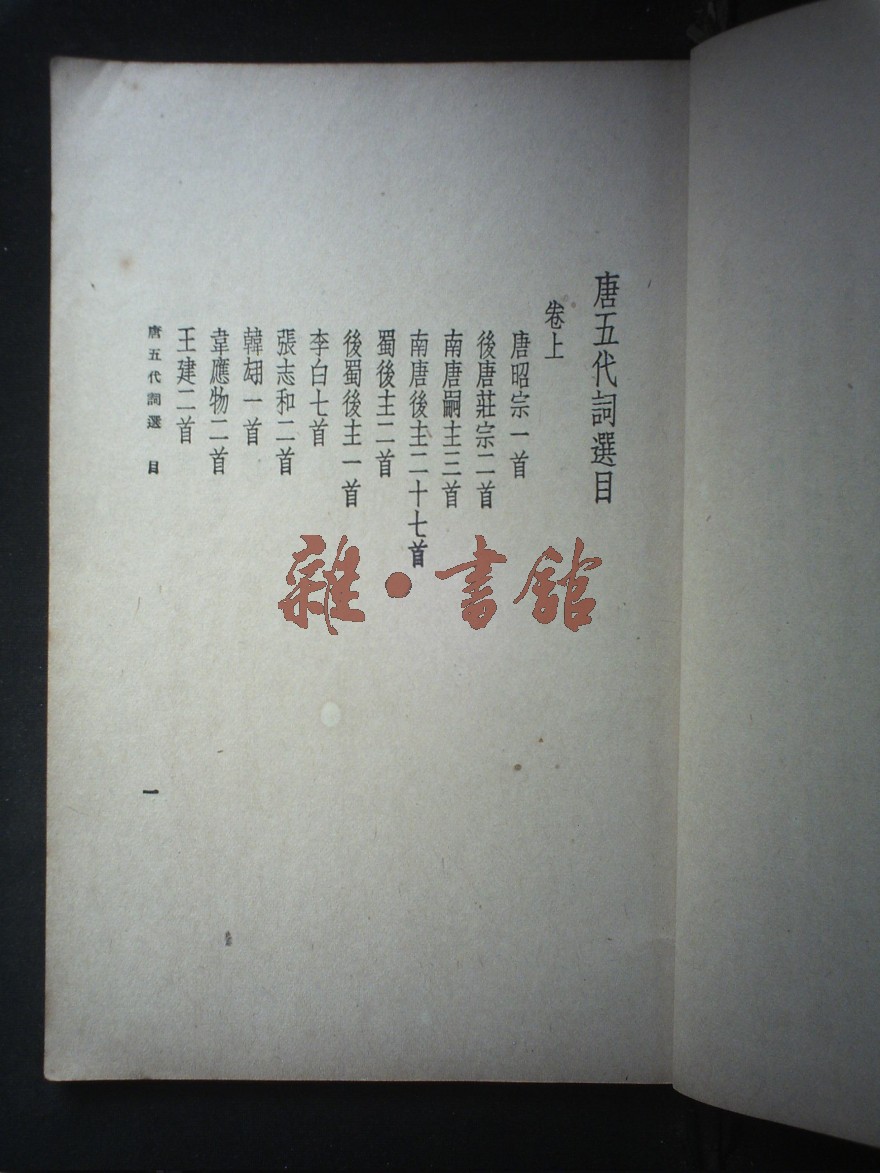 唐五代詞選目
卷上
唐昭宗一首
後唐莊宗二首
南唐嗣主三首
南唐後主二十七首
蜀後主二首
後蜀後主一首
李白七首
張志和二首
韓翃一首
韋應物二首
王建二首
唐五代詞選 目
一
雜·書館